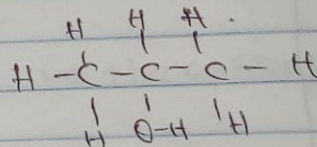 H H H
H - C - C - C - H
H O-H H